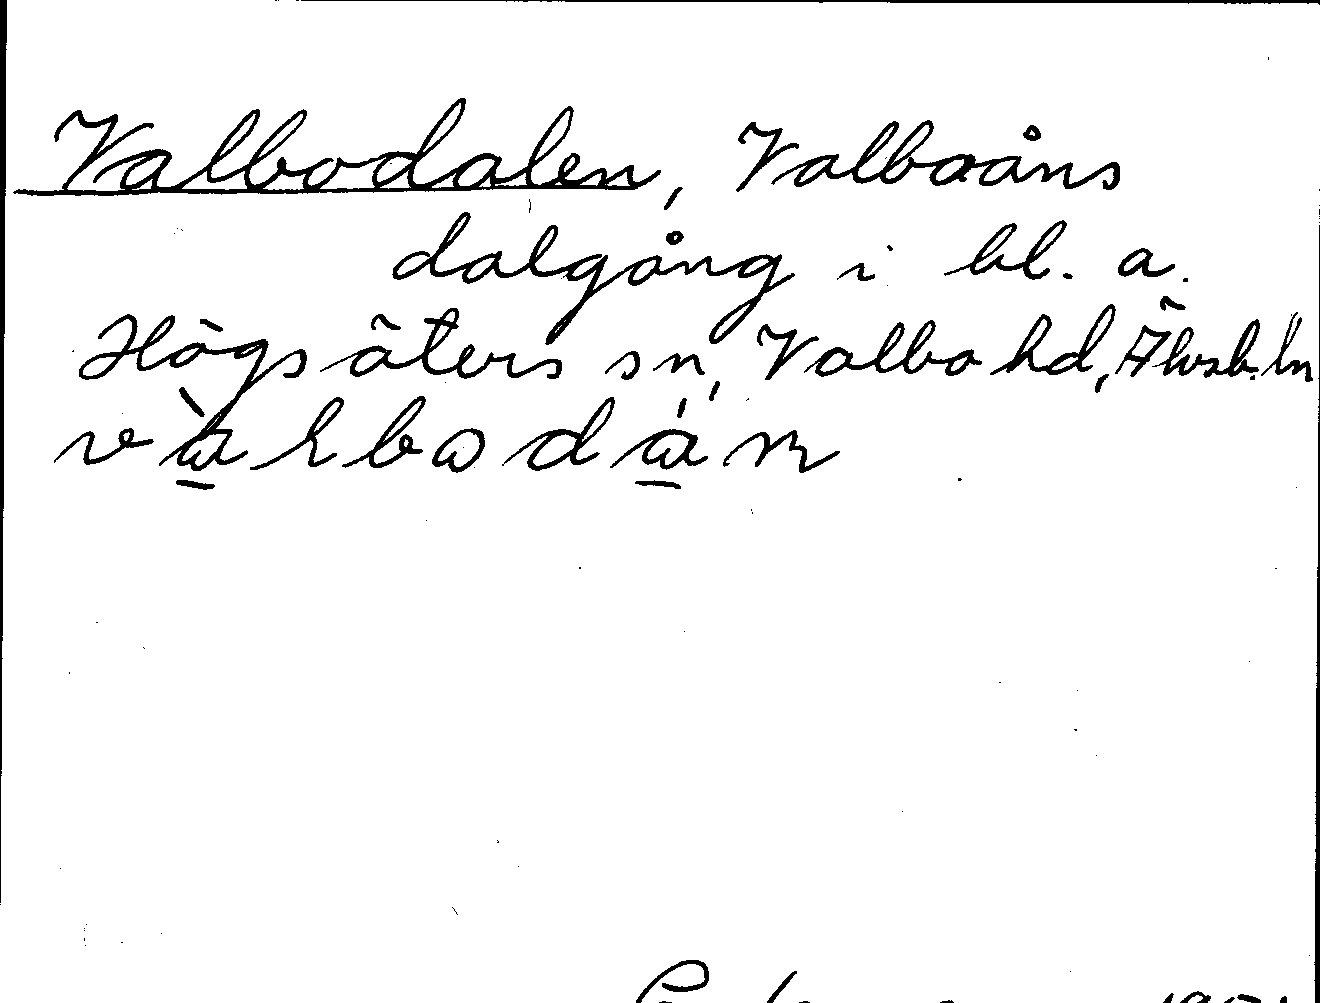 Valbodalen, Valboåns
dalgång i bl. a.
Högsäters sn, Valbo hd, Älvsb. ln